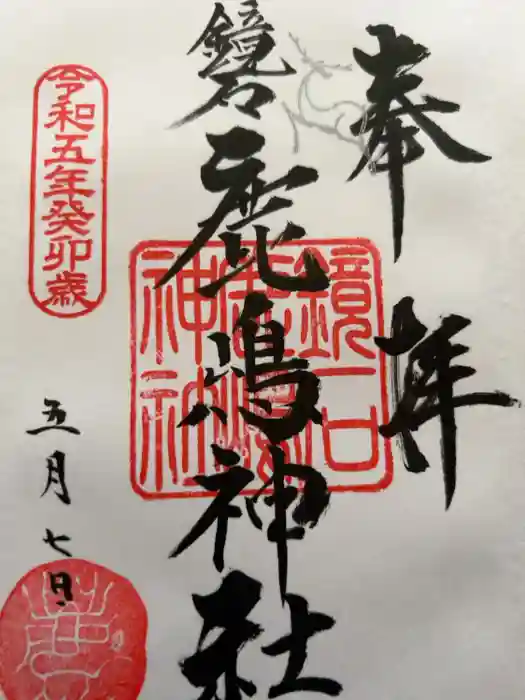 奉拝
鏡石
鹿嶋神社
鏡石
鹿嶋
神社
令和五年癸卯歳
五月七日